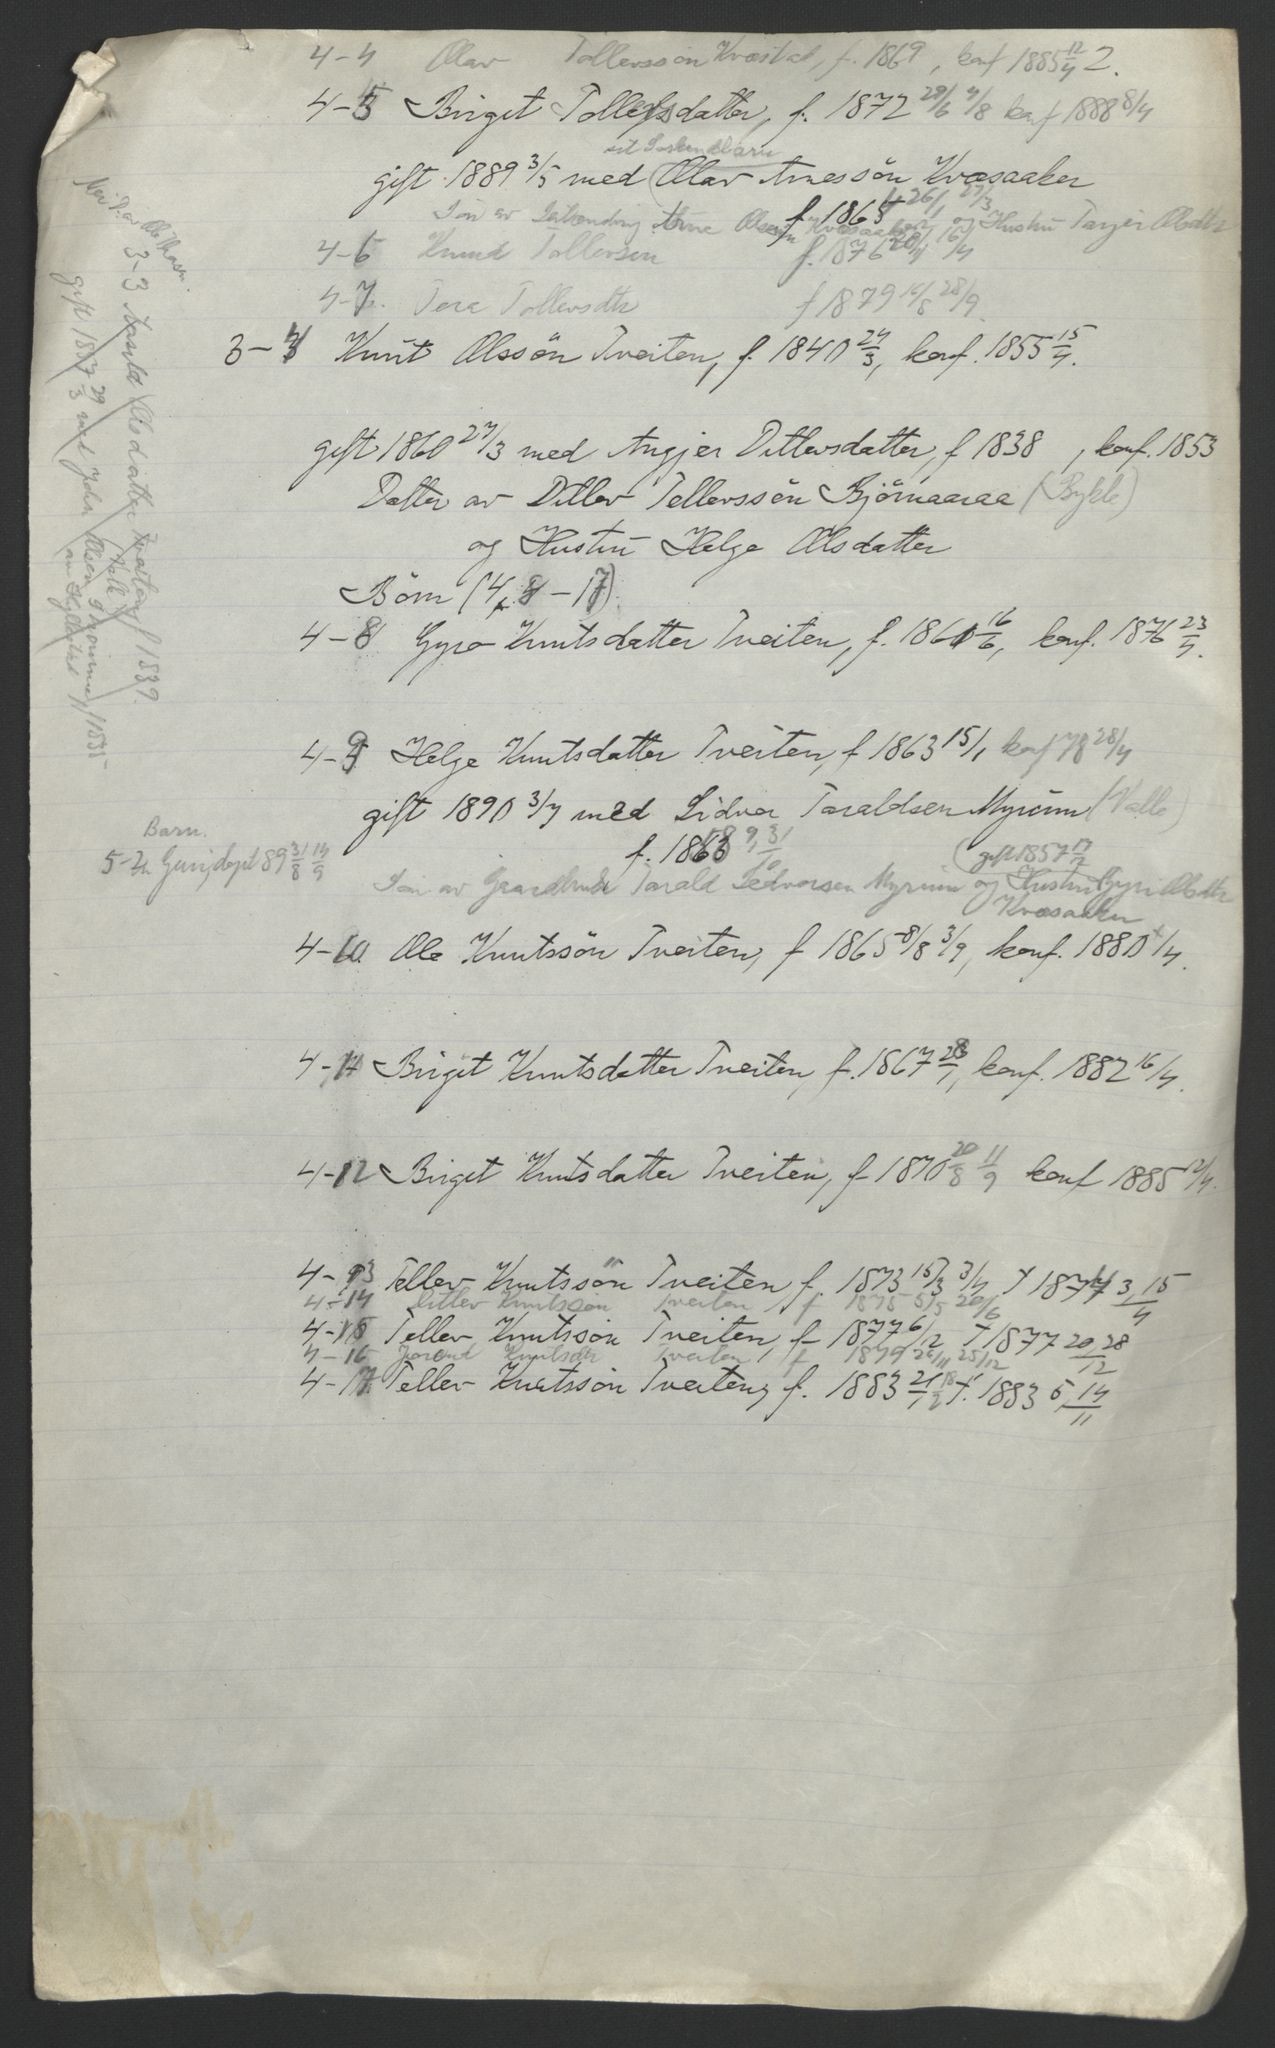 4-4 Olav Tollevssön Kvæstad, f. 1869, konf 1885 12/4 2.
4-5 Birget Tollefsdatter, f. 1872 29/6 4/8 konf 1888 8/4
sit Søskendbarn
gift 1889 3/5 med (Olav Arnessön Kvæsaaker
f. 1864 26/1 27/3
Søn av Arne Olsen Kvæsaaker og Hustru Tarjer Olsdtr
4-6 Knud Tollevsen f. 1876 20/4 16/4
4-7. Tore Tollevsdtr f 1879 16/8 28/9.
3-4 Knut Olssön Tveiten, f. 1840 24/3, konf. 1855 15/4.
gift 1860 27/3 med Angjer Ditlevsdatter, f 1838 , konf. 1853
Datter av Ditlev Tellevssön Björnaaraa (Bykle)
og Hustru Helge Olsdatter
Börn (4, 8-17).
4-8 Gyro Knutsdatter Tveiten, f. 1860 16/6, konf. 1876 23/4.
4-9 Helge Knutsdatter Tveiten, f 1863 15/1 konf 78 28/4
gift 1890 3/7 med Sidver Taraldsen Myrum (Valle)
f. 1868 9/10 31/10
(gift 1857 17/7
Søn av Gaardbruk Tarald Sedvorsen Myrum og Hustru Gyri Olsdtr
Kvæsaaker
Barn.
5-2. Gunj døpt 89 31/8 14/9
4-10. Ole Knutssön Tveiten, f 1865 8/8 3/9, konf. 1880 4/4.
4-11 Birgit Knutsdatter Tveiten, f. 1867 28/1, konf. 1882 16/4.
4-12 Birget Knutsdatter Tveiten, f 1870 20/8 11/9 konf 1885 12/4.
4-13 Tellev Knutssön Tveiten f. 1873 15/3 3/4 † 1874 3, 15/4
4-14 Ditlev Knutssön Tveiten f 1875 5/5 20/6
4-15 Tellev Knutssön Tveiten, f 1877 6/12 † 1877 20, 28/12
4-16 Jorond Knutsdtr Tveiten f 1879 26/11 25/12
4-17 Tellev Knutssön Tveiten, f. 1883 21/1 18/2 †. 1883 5, 14/11
3-3 Olsdatter Kvæstad f 1839.
gift 1857 29/3 med John Olsen f 1835